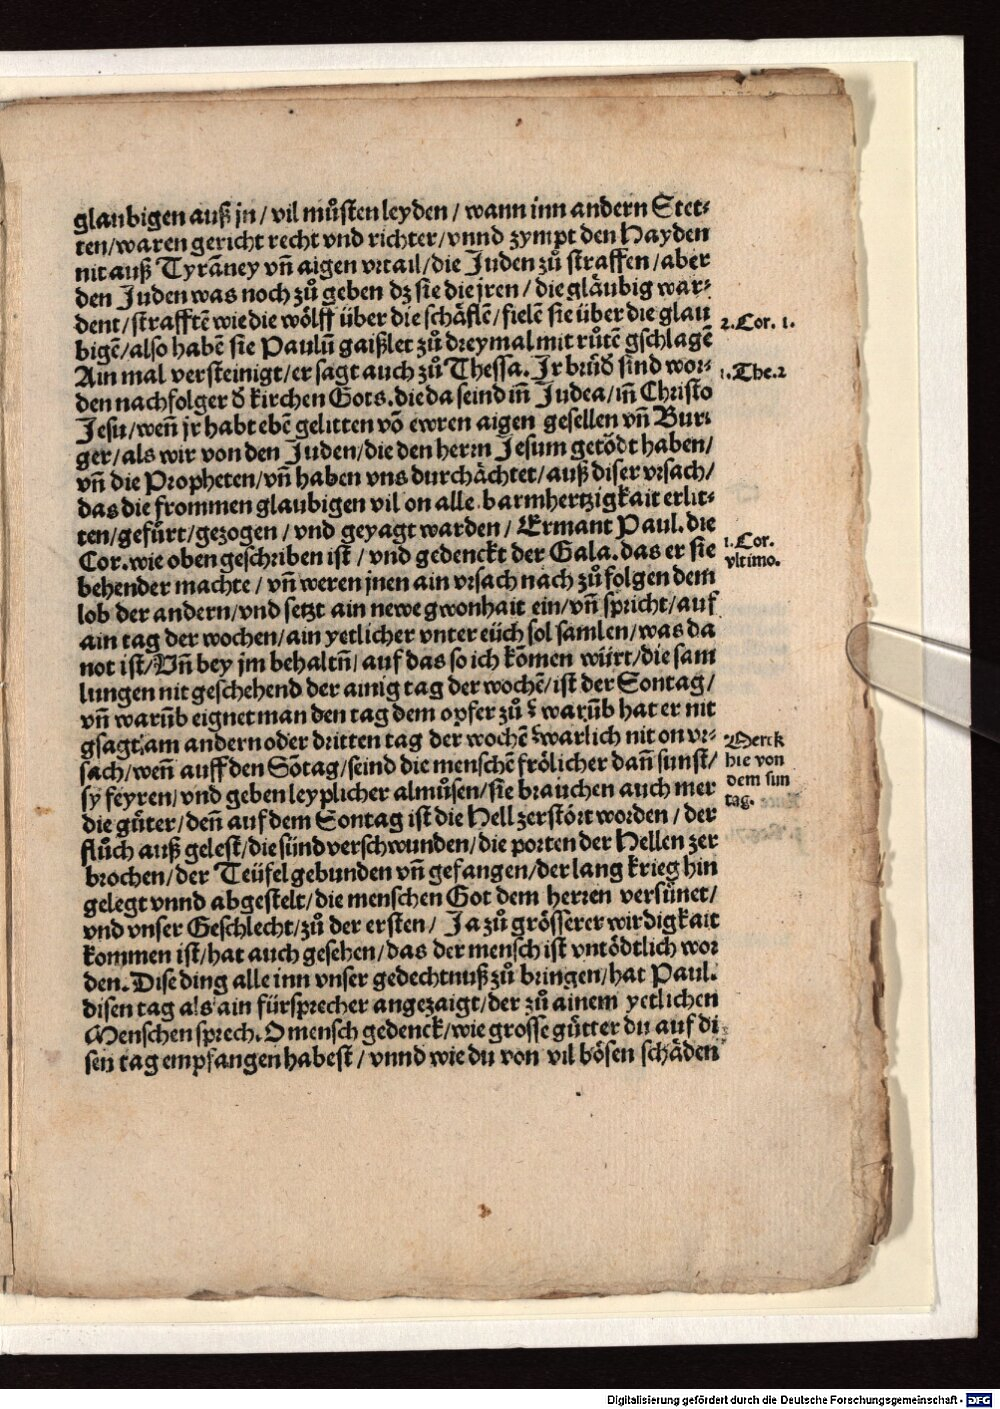 glaubigen auß jn / vil můſten leyden / wann inn andern Stet⸗
ten/waren gericht recht vnd richter/vnnd zympt den Hayden
nit auß Tyrāney vn̄ aigen vrtail/die Juden zů ſtraffen /aber
den Juden was noch zů geben dz ſie die jren / die gläubig war⸗
dent/ſtrafftē wie die wölff über die ſchäflē/fielē ſie über die glau
bigē/alſo habē ſie Paulū gaißlet zů dreymal mit růtē gſchlagē
2.Cor. 1.
Ain mal verſteinigt/er ſagt auch zů Theſſa. Jr brůd̄ ſind wor⸗
1.The.2
den nachfolger d̄ kirchen Gots. die da ſeind in̄ Judea/in̄ Chriſto
Jeſu/wen̄ jr habt ebē gelitten vō ewren aigen geſellen vn̄ Bur⸗
ger/als wir von den Juden/die den herrn Jeſum getödt haben/
vn̄ die Propheten/vn̄ haben vns durchächtet/auß diſer vrſach/
das die frommen glaubigen vil on alle barmhertzigkait erlit⸗
ten/gefůrt/gezogen / vnd geyagt warden / Ermant Paul. die
Cor. wie oben geſchriben iſt / vnd gedenckt der Gala. das er ſie
1.Cor.
vltimo.
behender machte / vn̄ weren jnen ain vrſach nach zů folgen dem
lob der andern/vnd ſetzt ain newe gwonhait ein/vn̄ ſpricht/auf
ain tag der wochen/ain yetlicher vnter eüch ſol ſamlen/was da
not iſt/Vn̄ bey jm behaltn̄/ auf das ſo ich kōmen würt/die ſam
lungen nit geſchehend der ainig tag der wochē/iſt der Sontag/
vn̄ warūb eignet man den tag dem opfer zů ? warūb hat er nit
gſagt/am andern oder dritten tag der wochē ? warlich nit on vr⸗
ſach/wen̄ auff den Sōtag/ſeind die menſchē frölicher dan̄ ſunſt/
Merck
hie von
dem ſun
tag.
ſy feyren/ vnd geben leyplicher almůſen/ſie brauchen auch mer
die gůter/den̄ auf dem Sontag iſt die Hell zerſtört worden / der
flůch auß geleſt/die ſünd verſchwunden/die porten der Hellen zer
brochen/der Teüfel gebunden vn̄ gefangen/der lang krieg hin
gelegt vnnd abgeſtelt/die menſchen Got dem herren verſünet/
vnd vnſer Geſchlecht/zů der erſten / Ja zů gröſſerer wirdigkait
kommen iſt/hat auch geſehen/das der menſch iſt vntödtlich wor
den. Diſe ding alle inn vnſer gedechtnuß zů bringen/hat Paul.
diſen tag als ain fürſprecher angezaigt/der zů ainem yetlichen
Menſchen ſprech. O menſch gedenck/wie groſſe gůtter du auf di⸗
ſen tag empfangen habeſt / vnnd wie du von vil böſen ſchäden
Digitalisierung gefördert durch die Deutsche Forschungsgemeinschaft - DFG